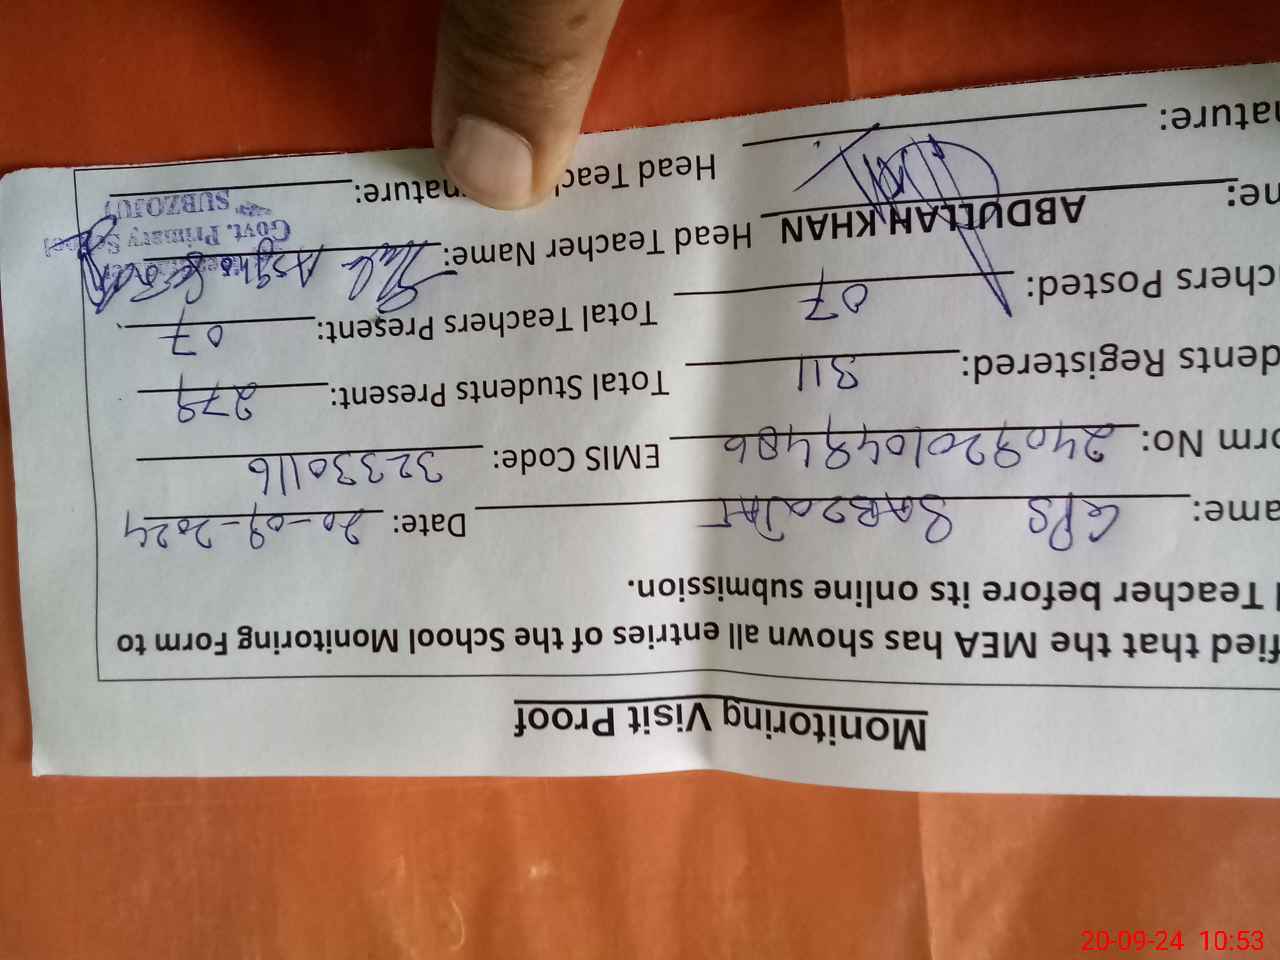 Monitoring Visit Proof
fied that the MEA has shown all entries of the School Monitoring Form to
Teacher before its online submission.
ame: GPS Date: 20-09-2024
orm No: EMIS Code: 32330116
dents Registered: 311 Total Students Present: 279
chers Posted: 07 Total Teachers Present: 07
me: ABDULLAH KHAN Head Teacher Name:
nature: Head Teac nature:
Govt. Primary School
20-09-24 10:53